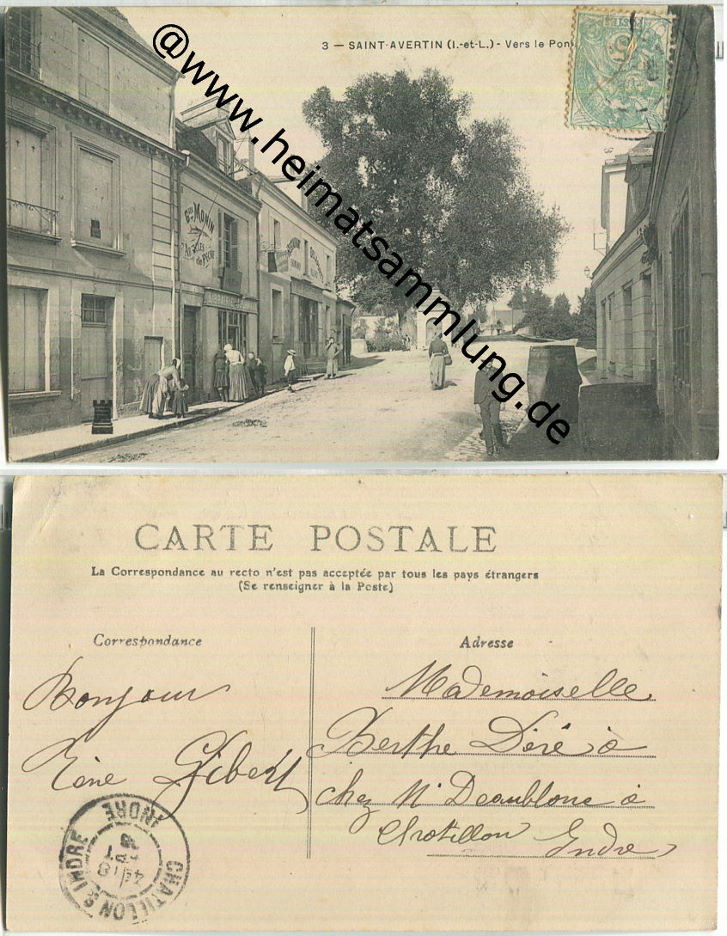 3 — SAINT-AVERTIN (I.-et-L.) - Vers le Pon
@www.heimatsammlung.de
MONIN
CARTE POSTALE
La Correspondance au recto n'est pas acceptée par tous les pays étrangers
(Se renseigner à la Poste)
Correspondance
Adresse
Bonjour
Mademoiselle
Berthe Déré à
chez M Deaublone à
Chatillon Indre
CHATILLON S INDRE
INDRE